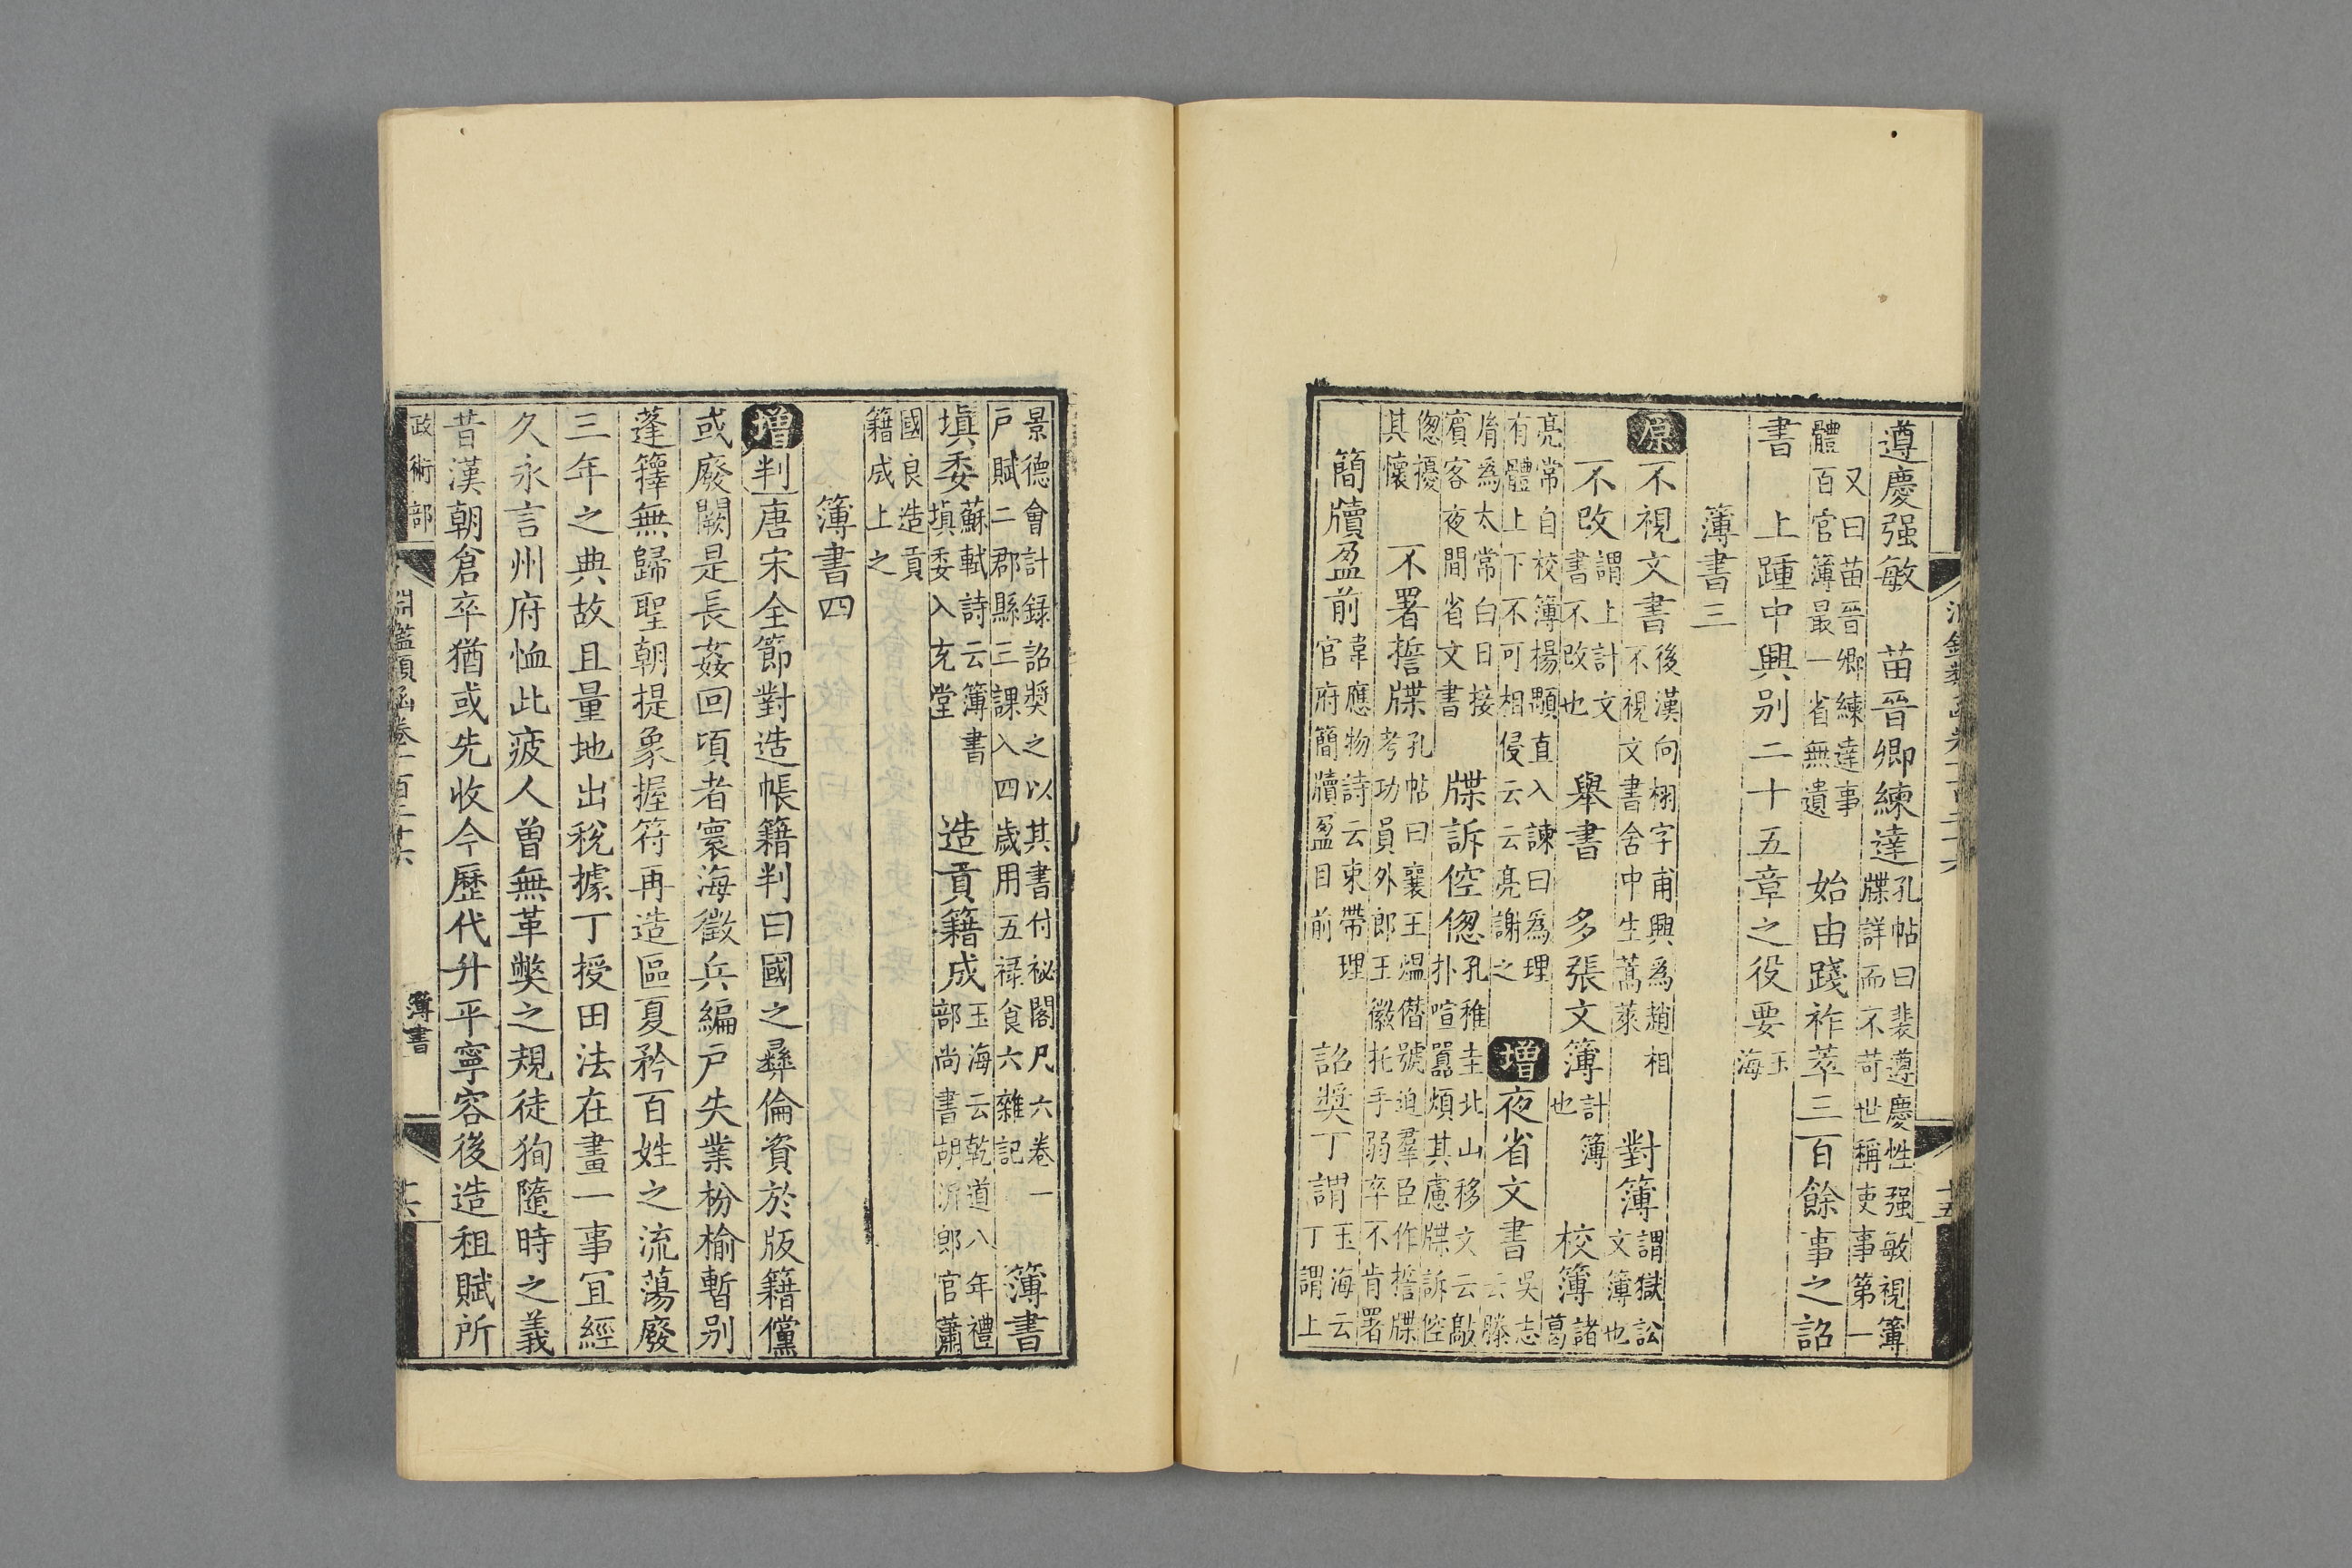 遵慶强敏　苗晉卿練達孔帖曰裴遵慶性强敏視簿牒詳而不苛世稱吏事第一
又曰苗晉卿練達事體百官簿最一省無遺　始由踐祚萃三百餘事之詔
書　上踵中興别二十五章之役要玉海
簿書三
原不視文書後漢向栩字甫興爲趙相不視文書舍中生蒿萊　對簿謂獄訟文簿也
不改謂上計文書不改也　舉書　多張文簿計簿也　校簿諸葛
亮常自校簿楊顒直入諫曰爲理有體上下不可相侵云云亮謝之　增夜省文書吳志云滕
胤爲太常白日接賓客夜間省文書　牒訴倥偬孔稚圭北山移文云敲扑喧囂煩其慮牒訴倥
偬擾其懷　不署誓牒孔帖曰襄王煴僭號迫羣臣作誓牒考功員外郎王徽托手弱卒不肯署
簡牘盈前韋應物詩云束帶理官府簡牘盈目前　詔奬丁謂玉海云丁謂上
景德會計錄詔奬之以其書付祕閣凡六卷一户賦二郡縣三課入四歲用五禄食六雜記　簿書
塡委蘇軾詩云簿書塡委入充堂　造貢籍成玉海云乾道八年禮部尚書胡沂郎官蕭
國良造貢籍成上之
簿書四
增判唐宋全節對造帳籍判曰國之彝倫資於版籍儻
或廢闕是長姦回頃者寰海徵兵編户失業枌榆暫别
蓬籜無歸聖朝提象握符再造區夏矜百姓之流蕩廢
三年之典故且量地出稅據丁授田法在畫一事宜經
久永言州府恤此疲人曾無革弊之規徒狥隨時之義
昔漢朝倉卒猶或先收今歷代升平寧容後造租賦所
政術部　淵鑑類函卷一百二十六　簿書